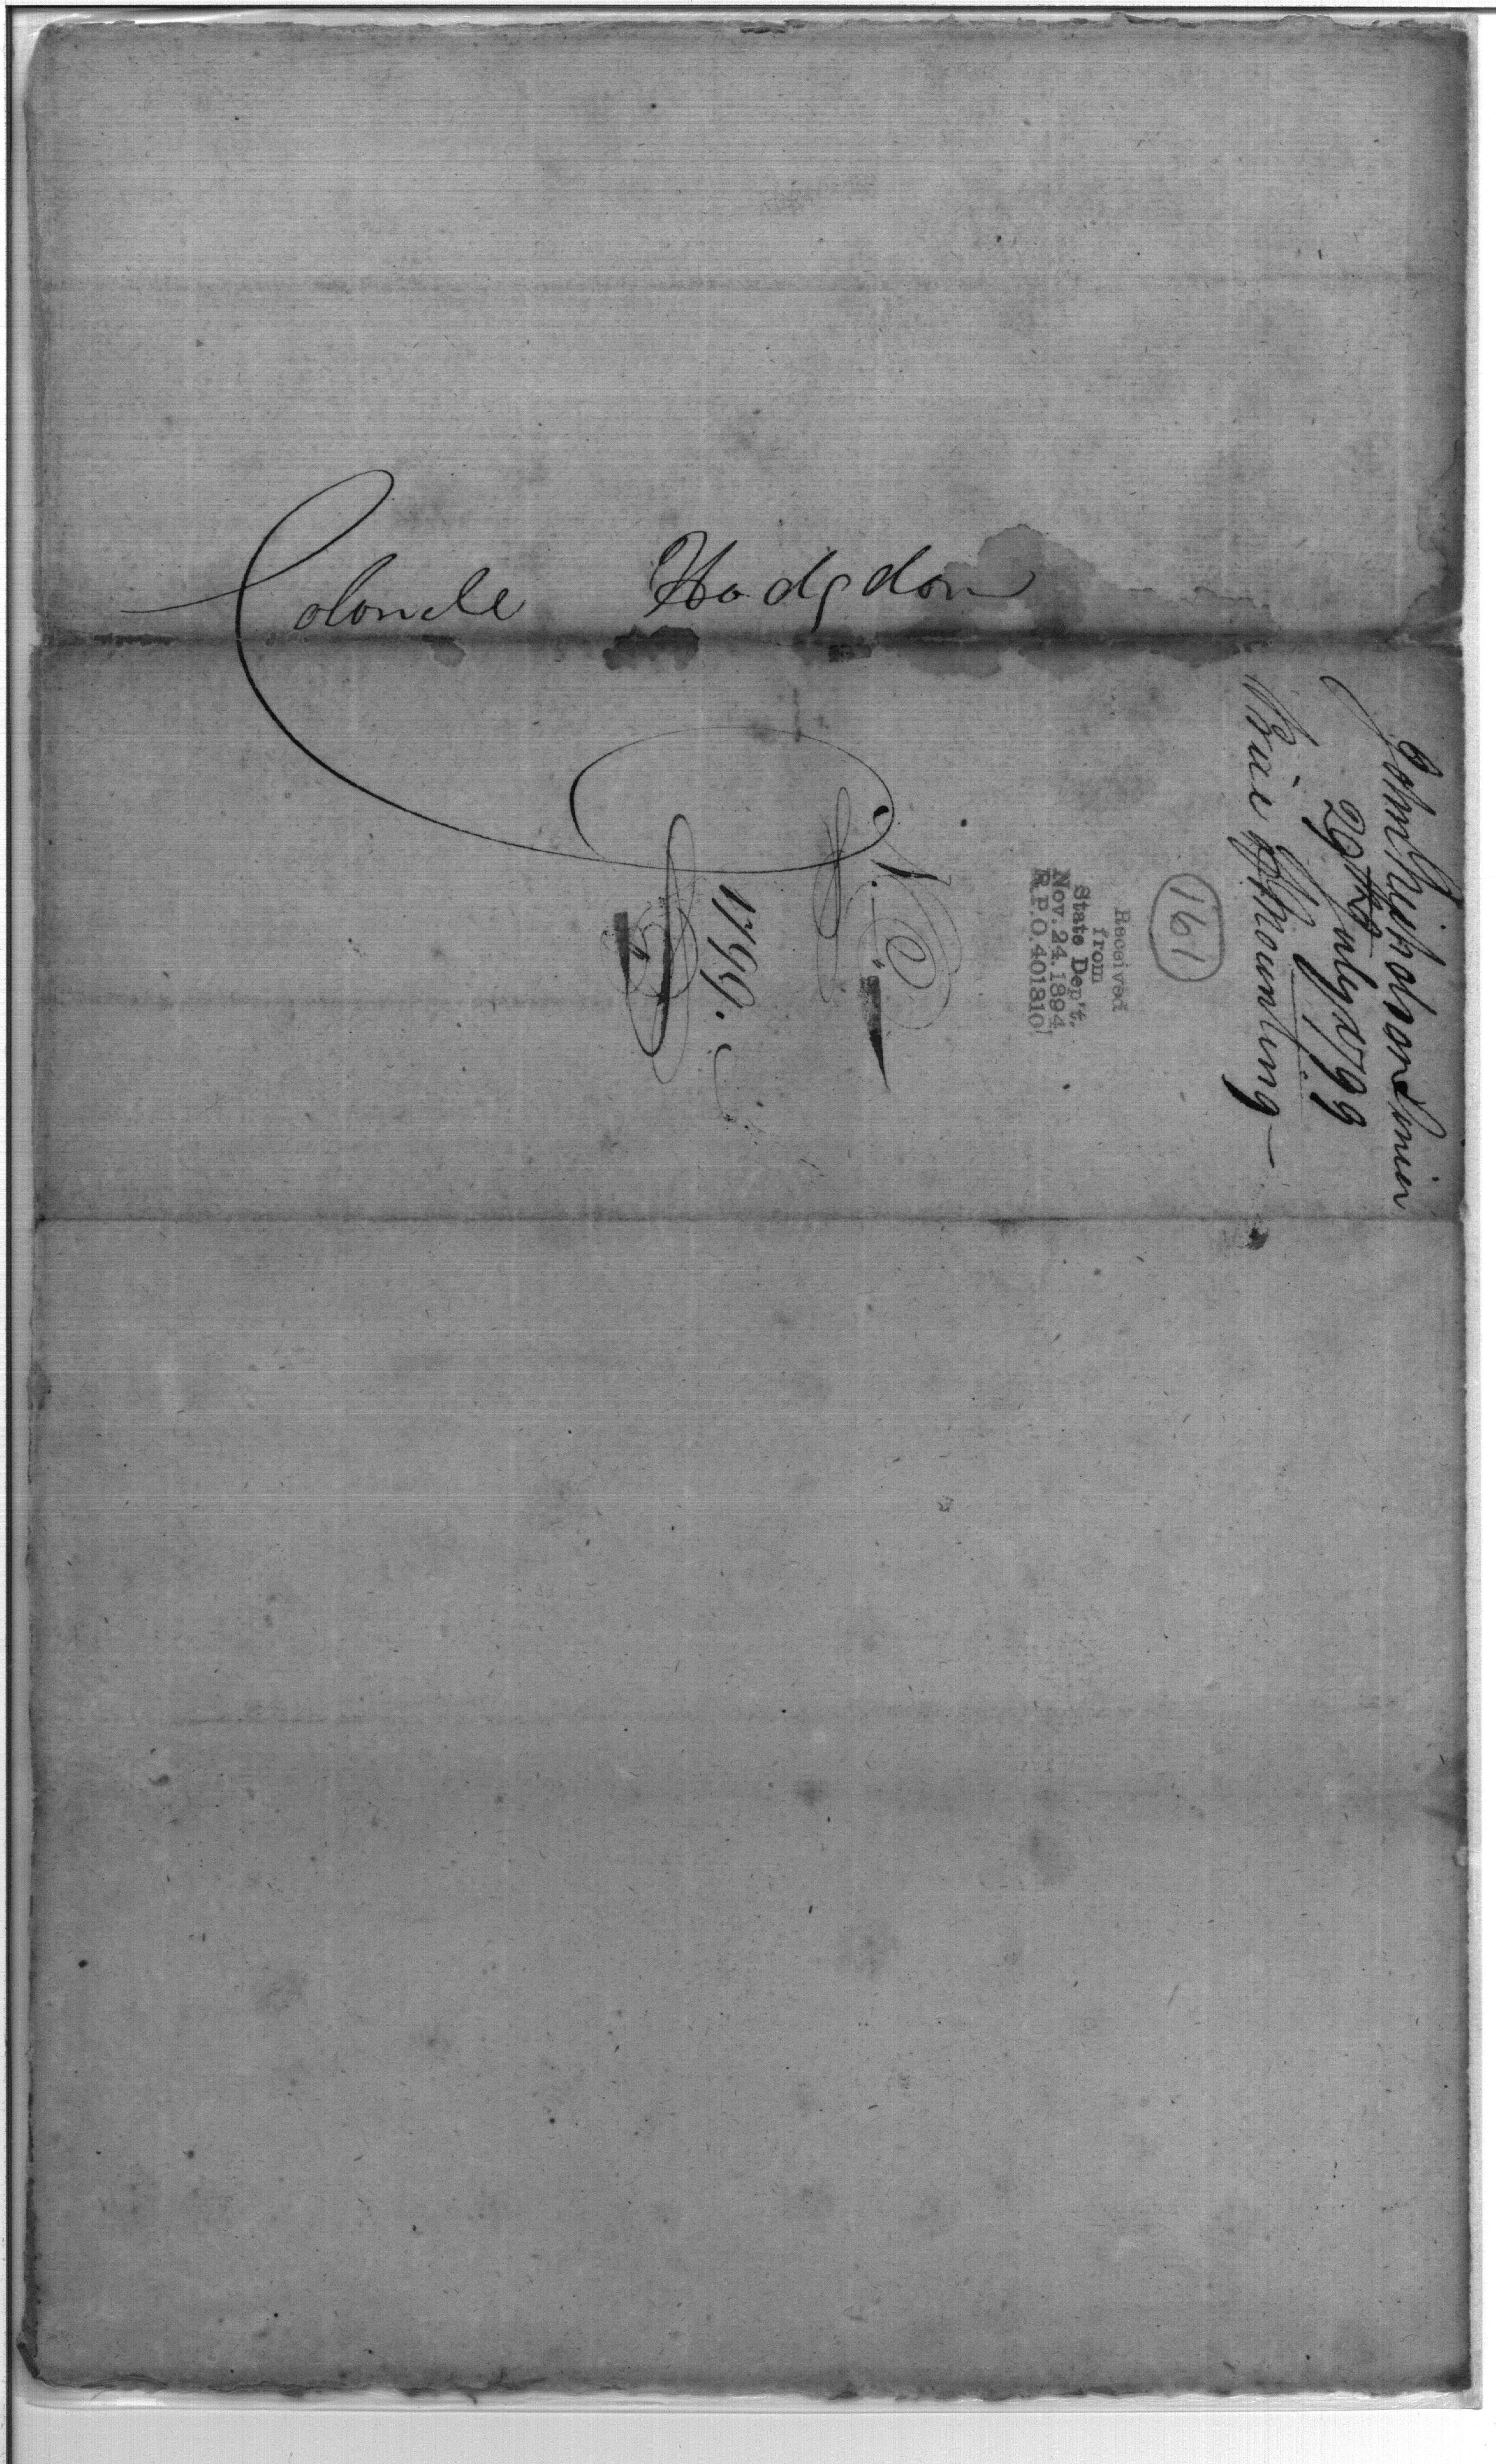 Colonele Hodgdon
John Nicholson Junier
29th July 1799
Price of Mounting —
161
Received
from
State Dep't.
Nov. 24. 1894
R.P.O. 401810
N.
1799.